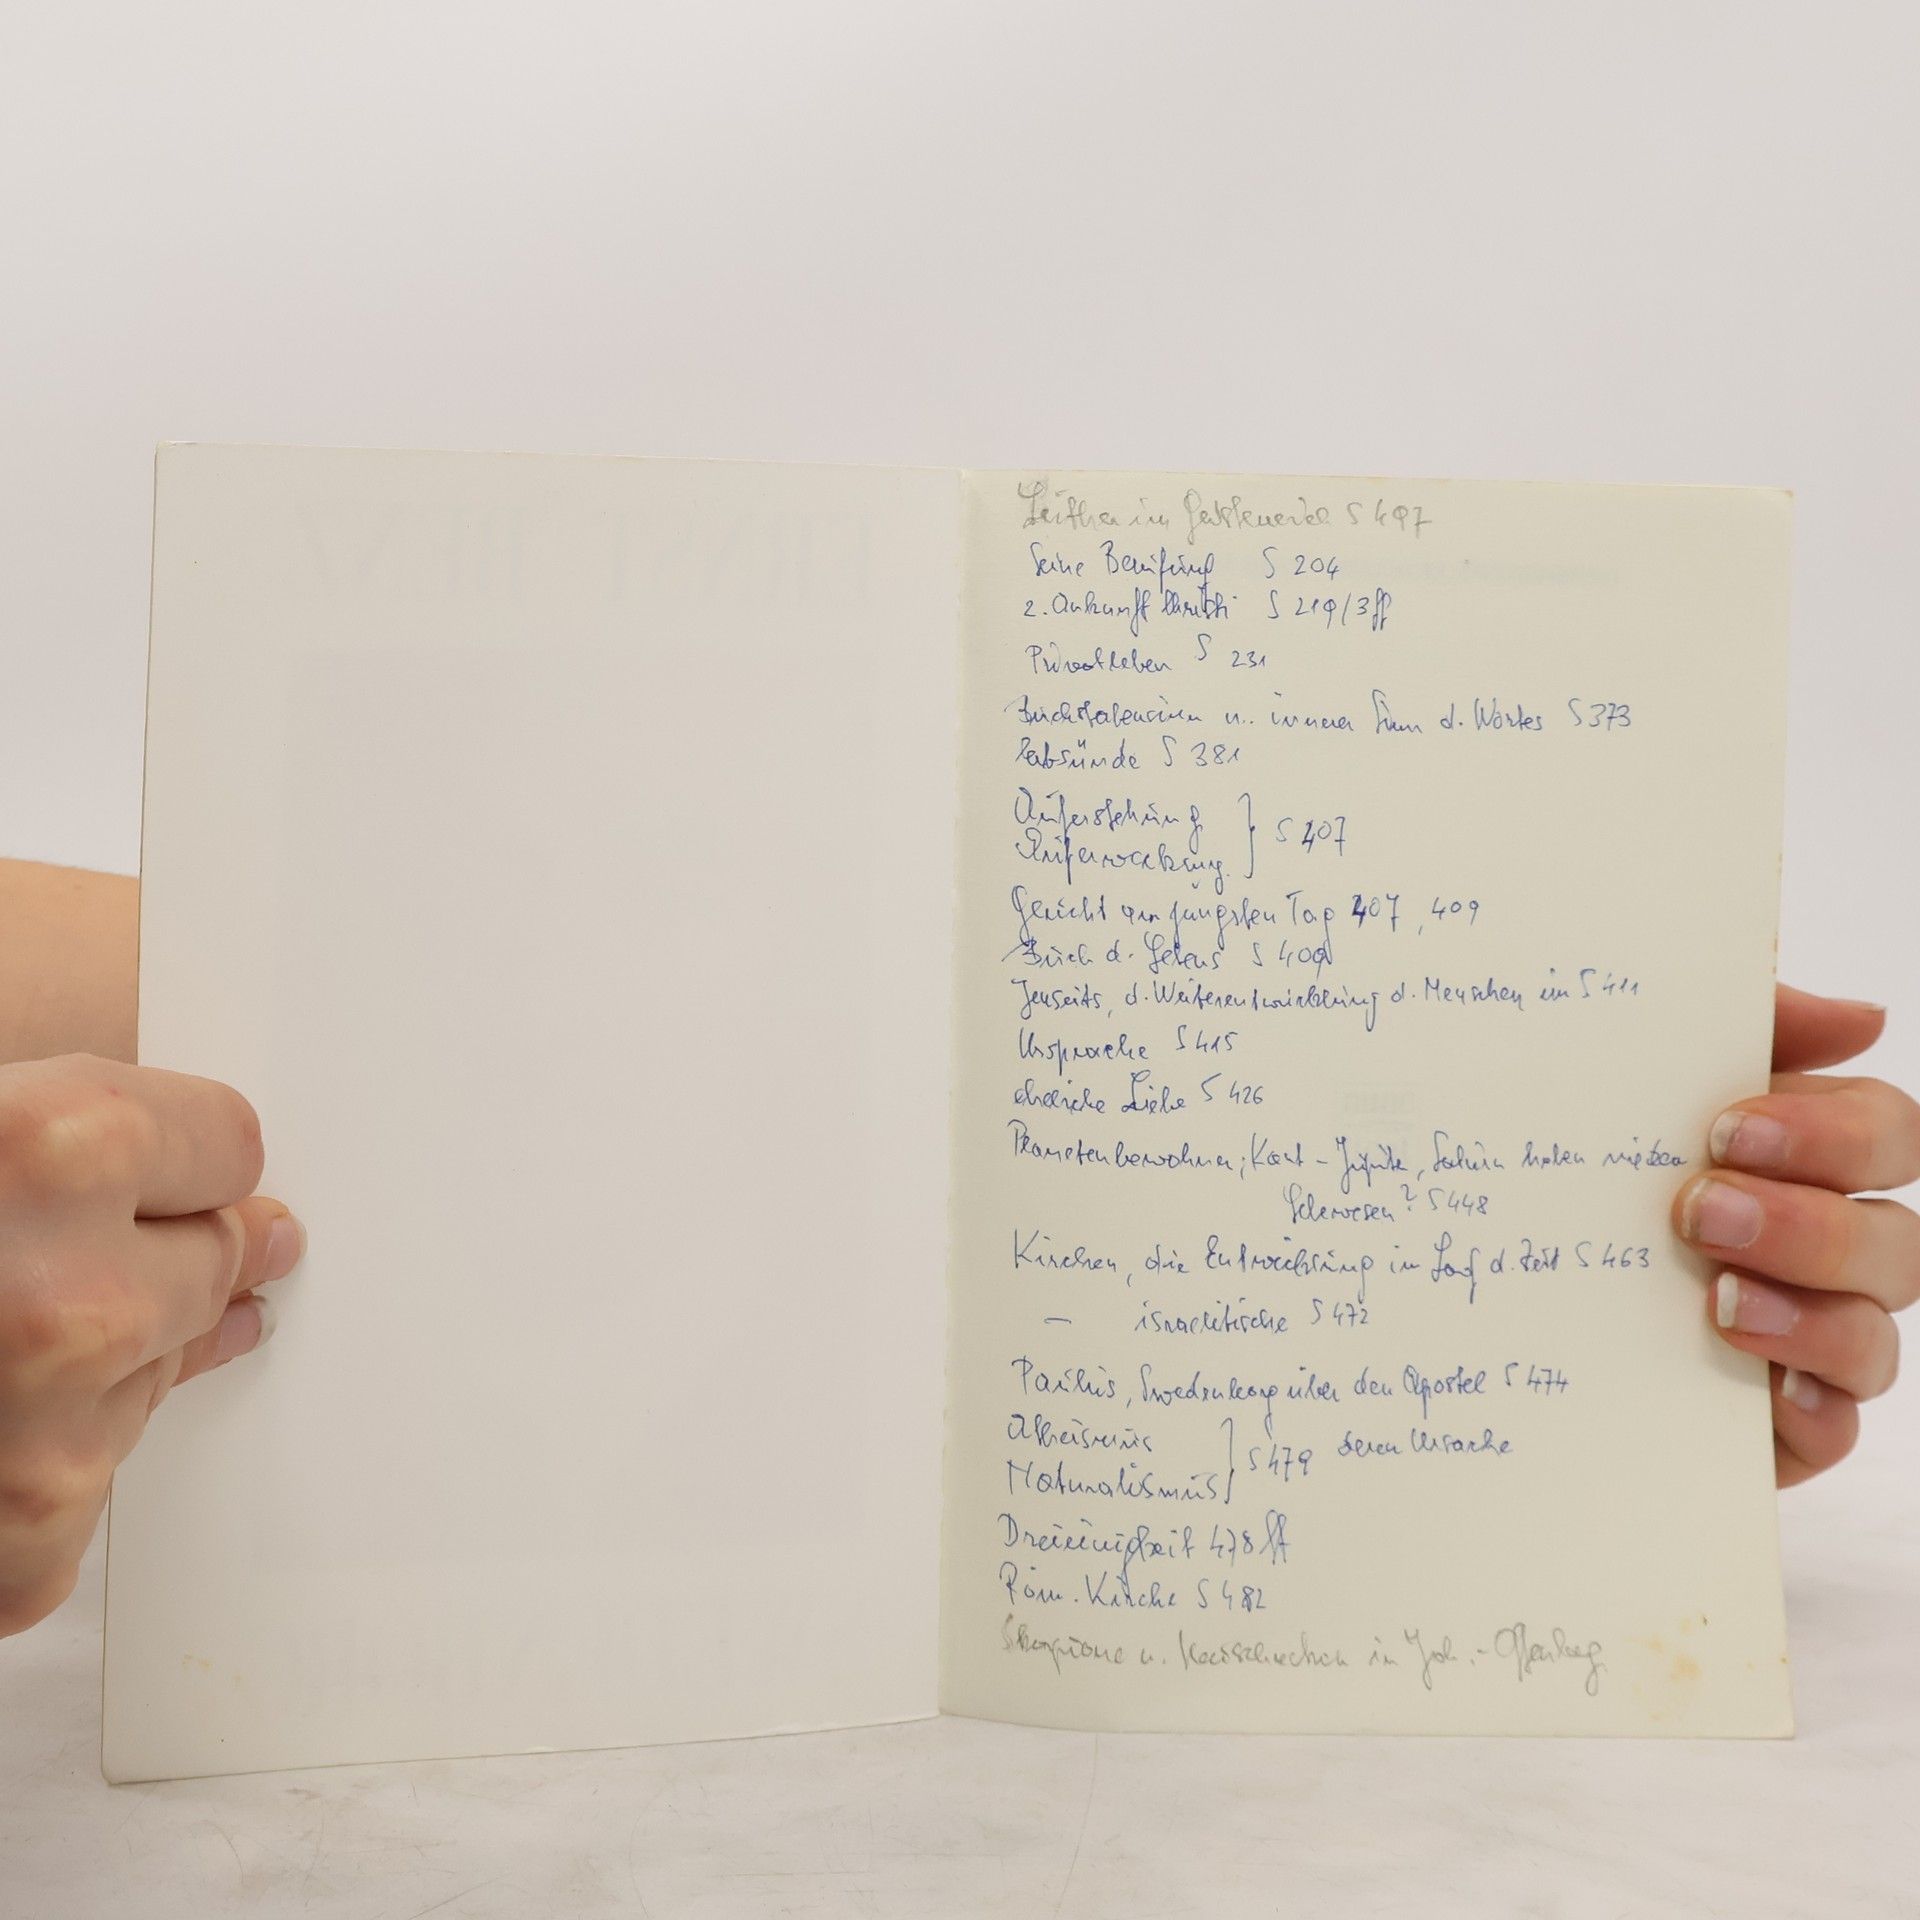 Luther im S 497
Seine Berufung S 204
2. Ankunft Christi S 219/3ff
Privatleben S 231
Buchstabensinn u. innerer Sinn d. Wortes S 373
Erbsünde S 381
Auferstehung
Auferweckung } S 407
Gericht am jüngsten Tag 407, 409
Buch d. Lebens S 409
Jenseits, d. Weiterentwicklung d. Menschen im S 411
Ursprache S 415
eheliche Liebe S 426
Planetenbewohner; Kant - Jupiter, Saturn haben
Lebewesen? S 448
Kirchen, die Entwicklung im Lauf d. Zeit S 463
– israelitische S 472
Paulus, Swedenborg über den Apostel S 474
Atheismus
Naturalismus } S 479 deren Ursache
Dreieinigkeit 478 ff
Röm. Kirche S 482
Skorpione u. Heuschrecken in Joh.-Offenbg.